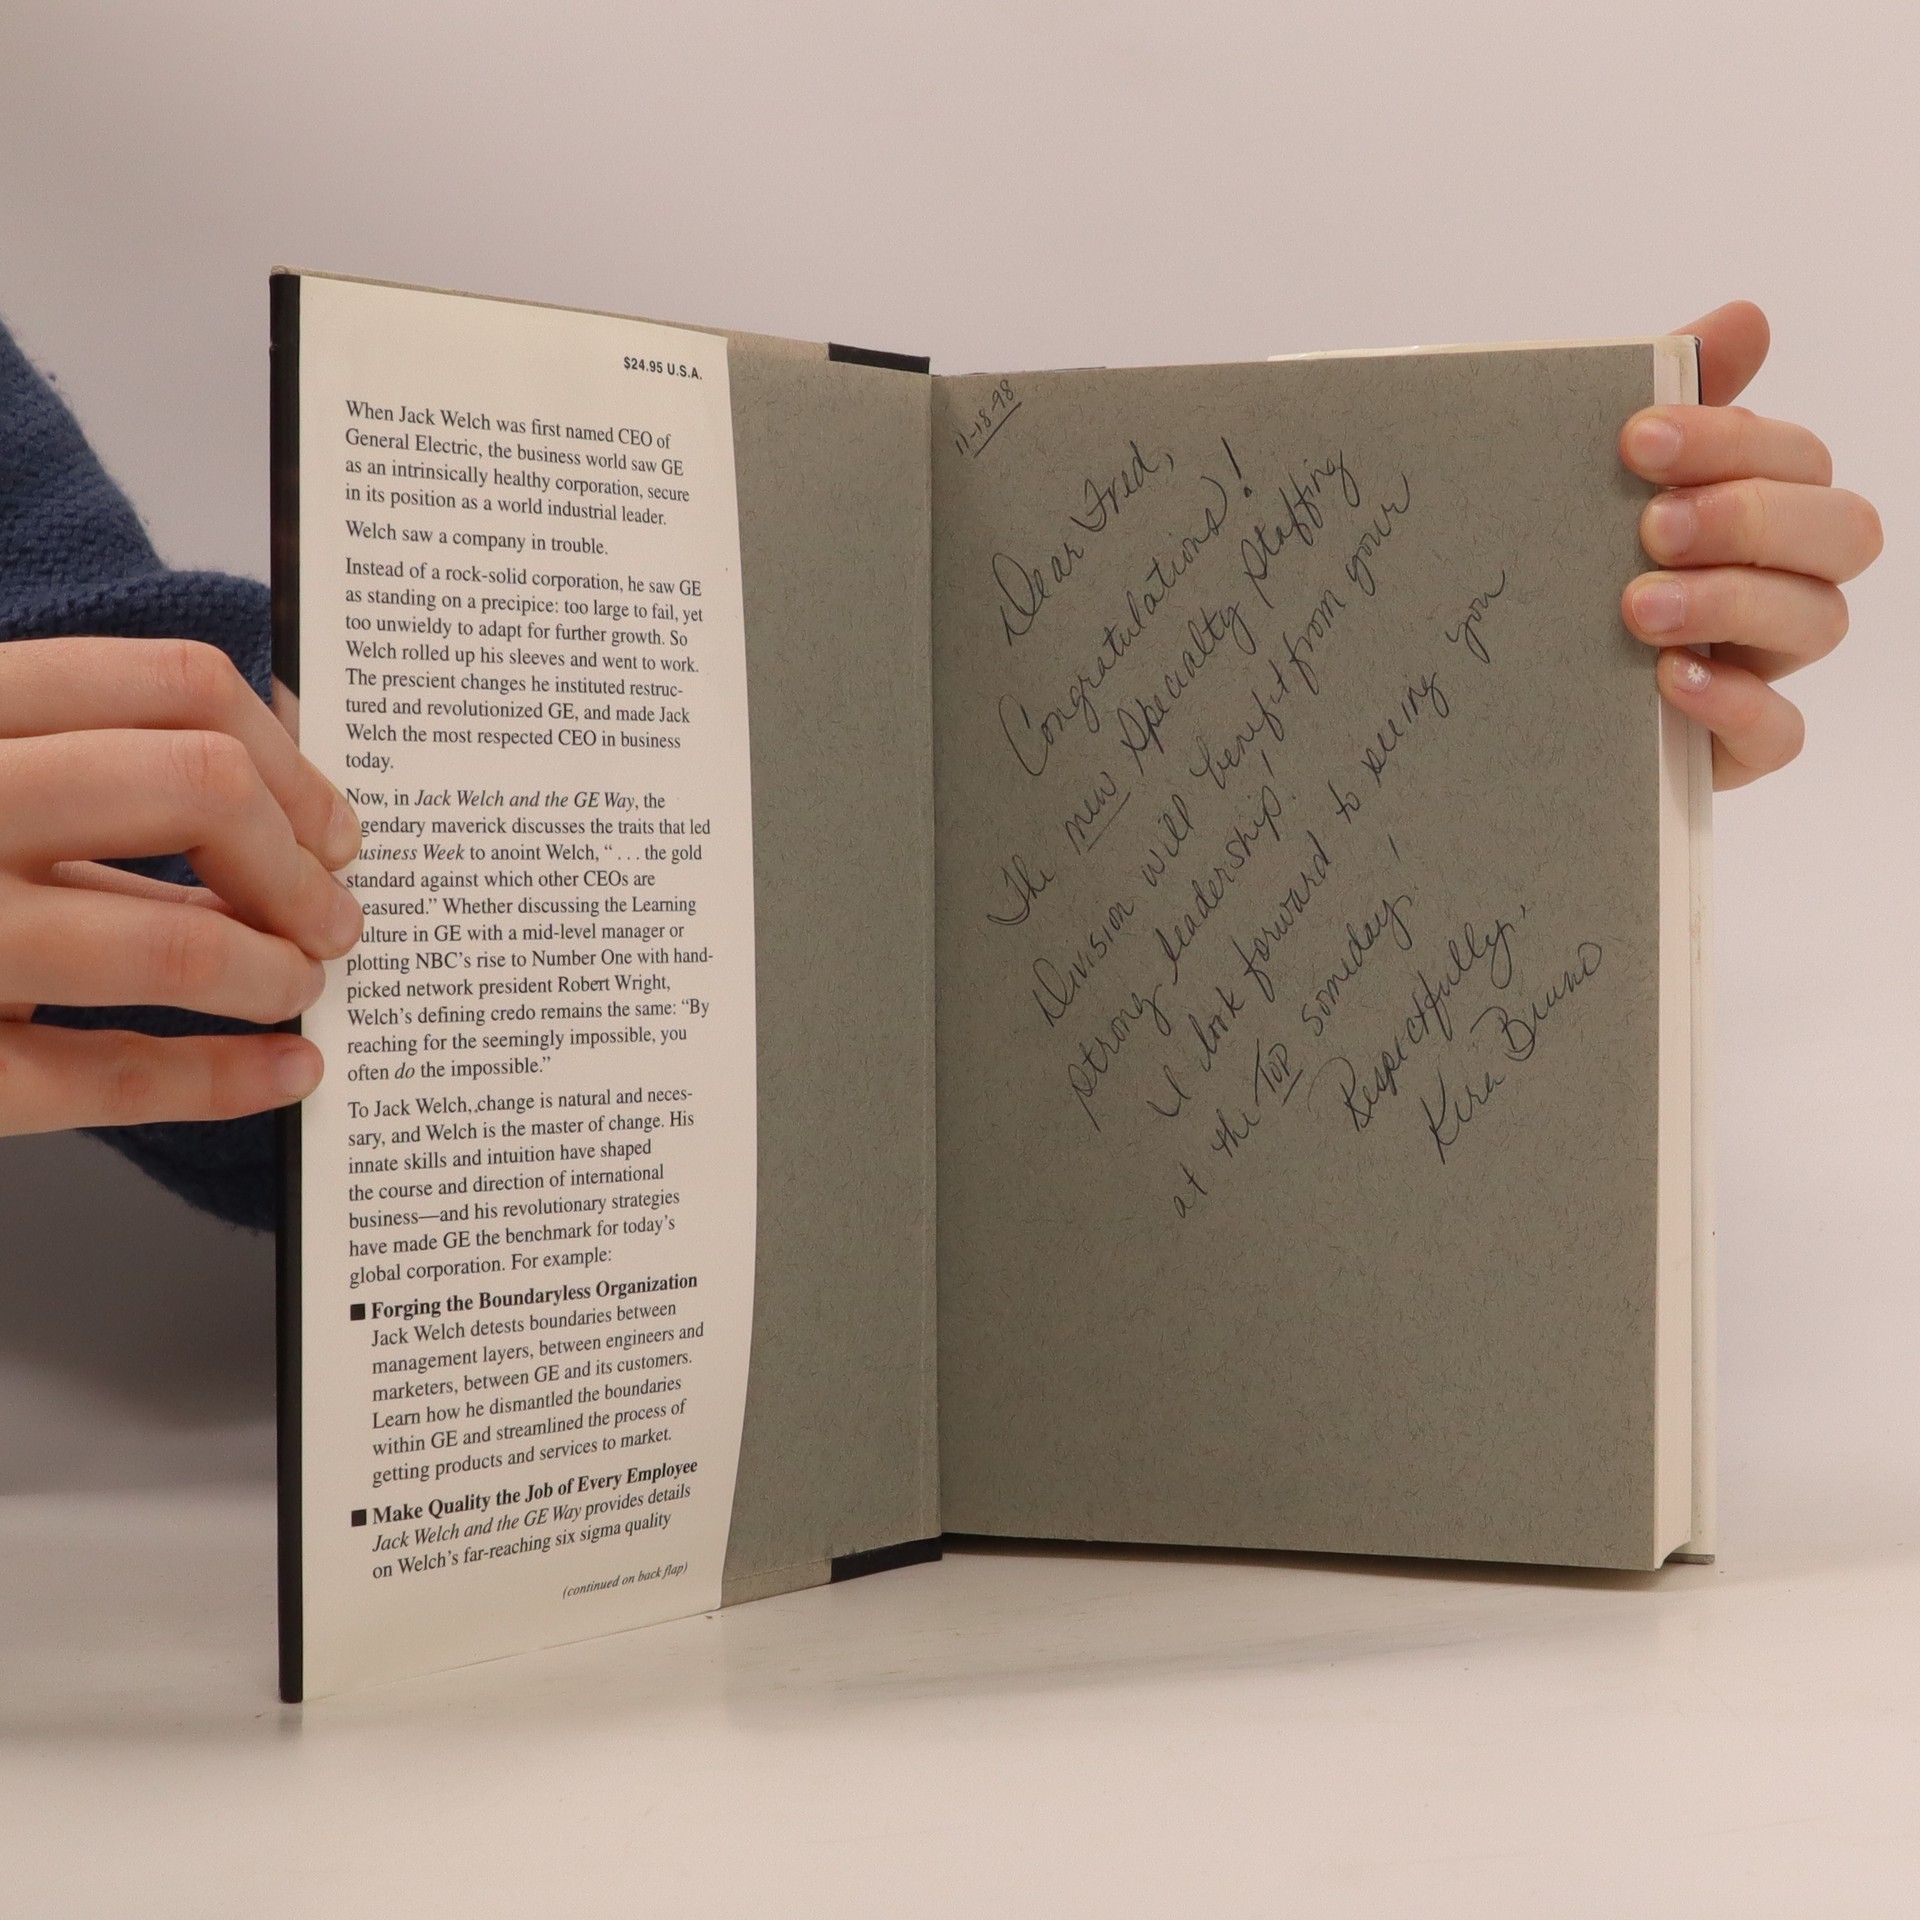 $24.95 U.S.A.
When Jack Welch was first named CEO of
General Electric, the business world saw GE
as an intrinsically healthy corporation, secure
in its position as a world industrial leader.
Welch saw a company in trouble.
Instead of a rock-solid corporation, he saw GE
as standing on a precipice: too large to fail, yet
too unwieldy to adapt for further growth. So
Welch rolled up his sleeves and went to work.
The prescient changes he instituted restruc-
tured and revolutionized GE, and made Jack
Welch the most respected CEO in business
today.
Now, in Jack Welch and the GE Way, the
gendary maverick discusses the traits that led
usiness Week to anoint Welch, “ . . . the gold
standard against which other CEOs are
easured.” Whether discussing the Learning
ulture in GE with a mid-level manager or
plotting NBC’s rise to Number One with hand-
picked network president Robert Wright,
Welch’s defining credo remains the same: “By
reaching for the seemingly impossible, you
often do the impossible.”
To Jack Welch, change is natural and neces-
sary, and Welch is the master of change. His
innate skills and intuition have shaped
the course and direction of international
business—and his revolutionary strategies
have made GE the benchmark for today’s
global corporation. For example:
■ Forging the Boundaryless Organization
Jack Welch detests boundaries between
management layers, between engineers and
marketers, between GE and its customers.
Learn how he dismantled the boundaries
within GE and streamlined the process of
getting products and services to market.
■ Make Quality the Job of Every Employee
Jack Welch and the GE Way provides details
on Welch’s far-reaching six sigma quality
(continued on back flap)
11-18-98
Dear Fred,
Congratulations!
The new Specialty Staffing
Division will benefit from your
strong leadership!
I look forward to seeing you
at the TOP someday!
Respectfully,
Kira Bruno